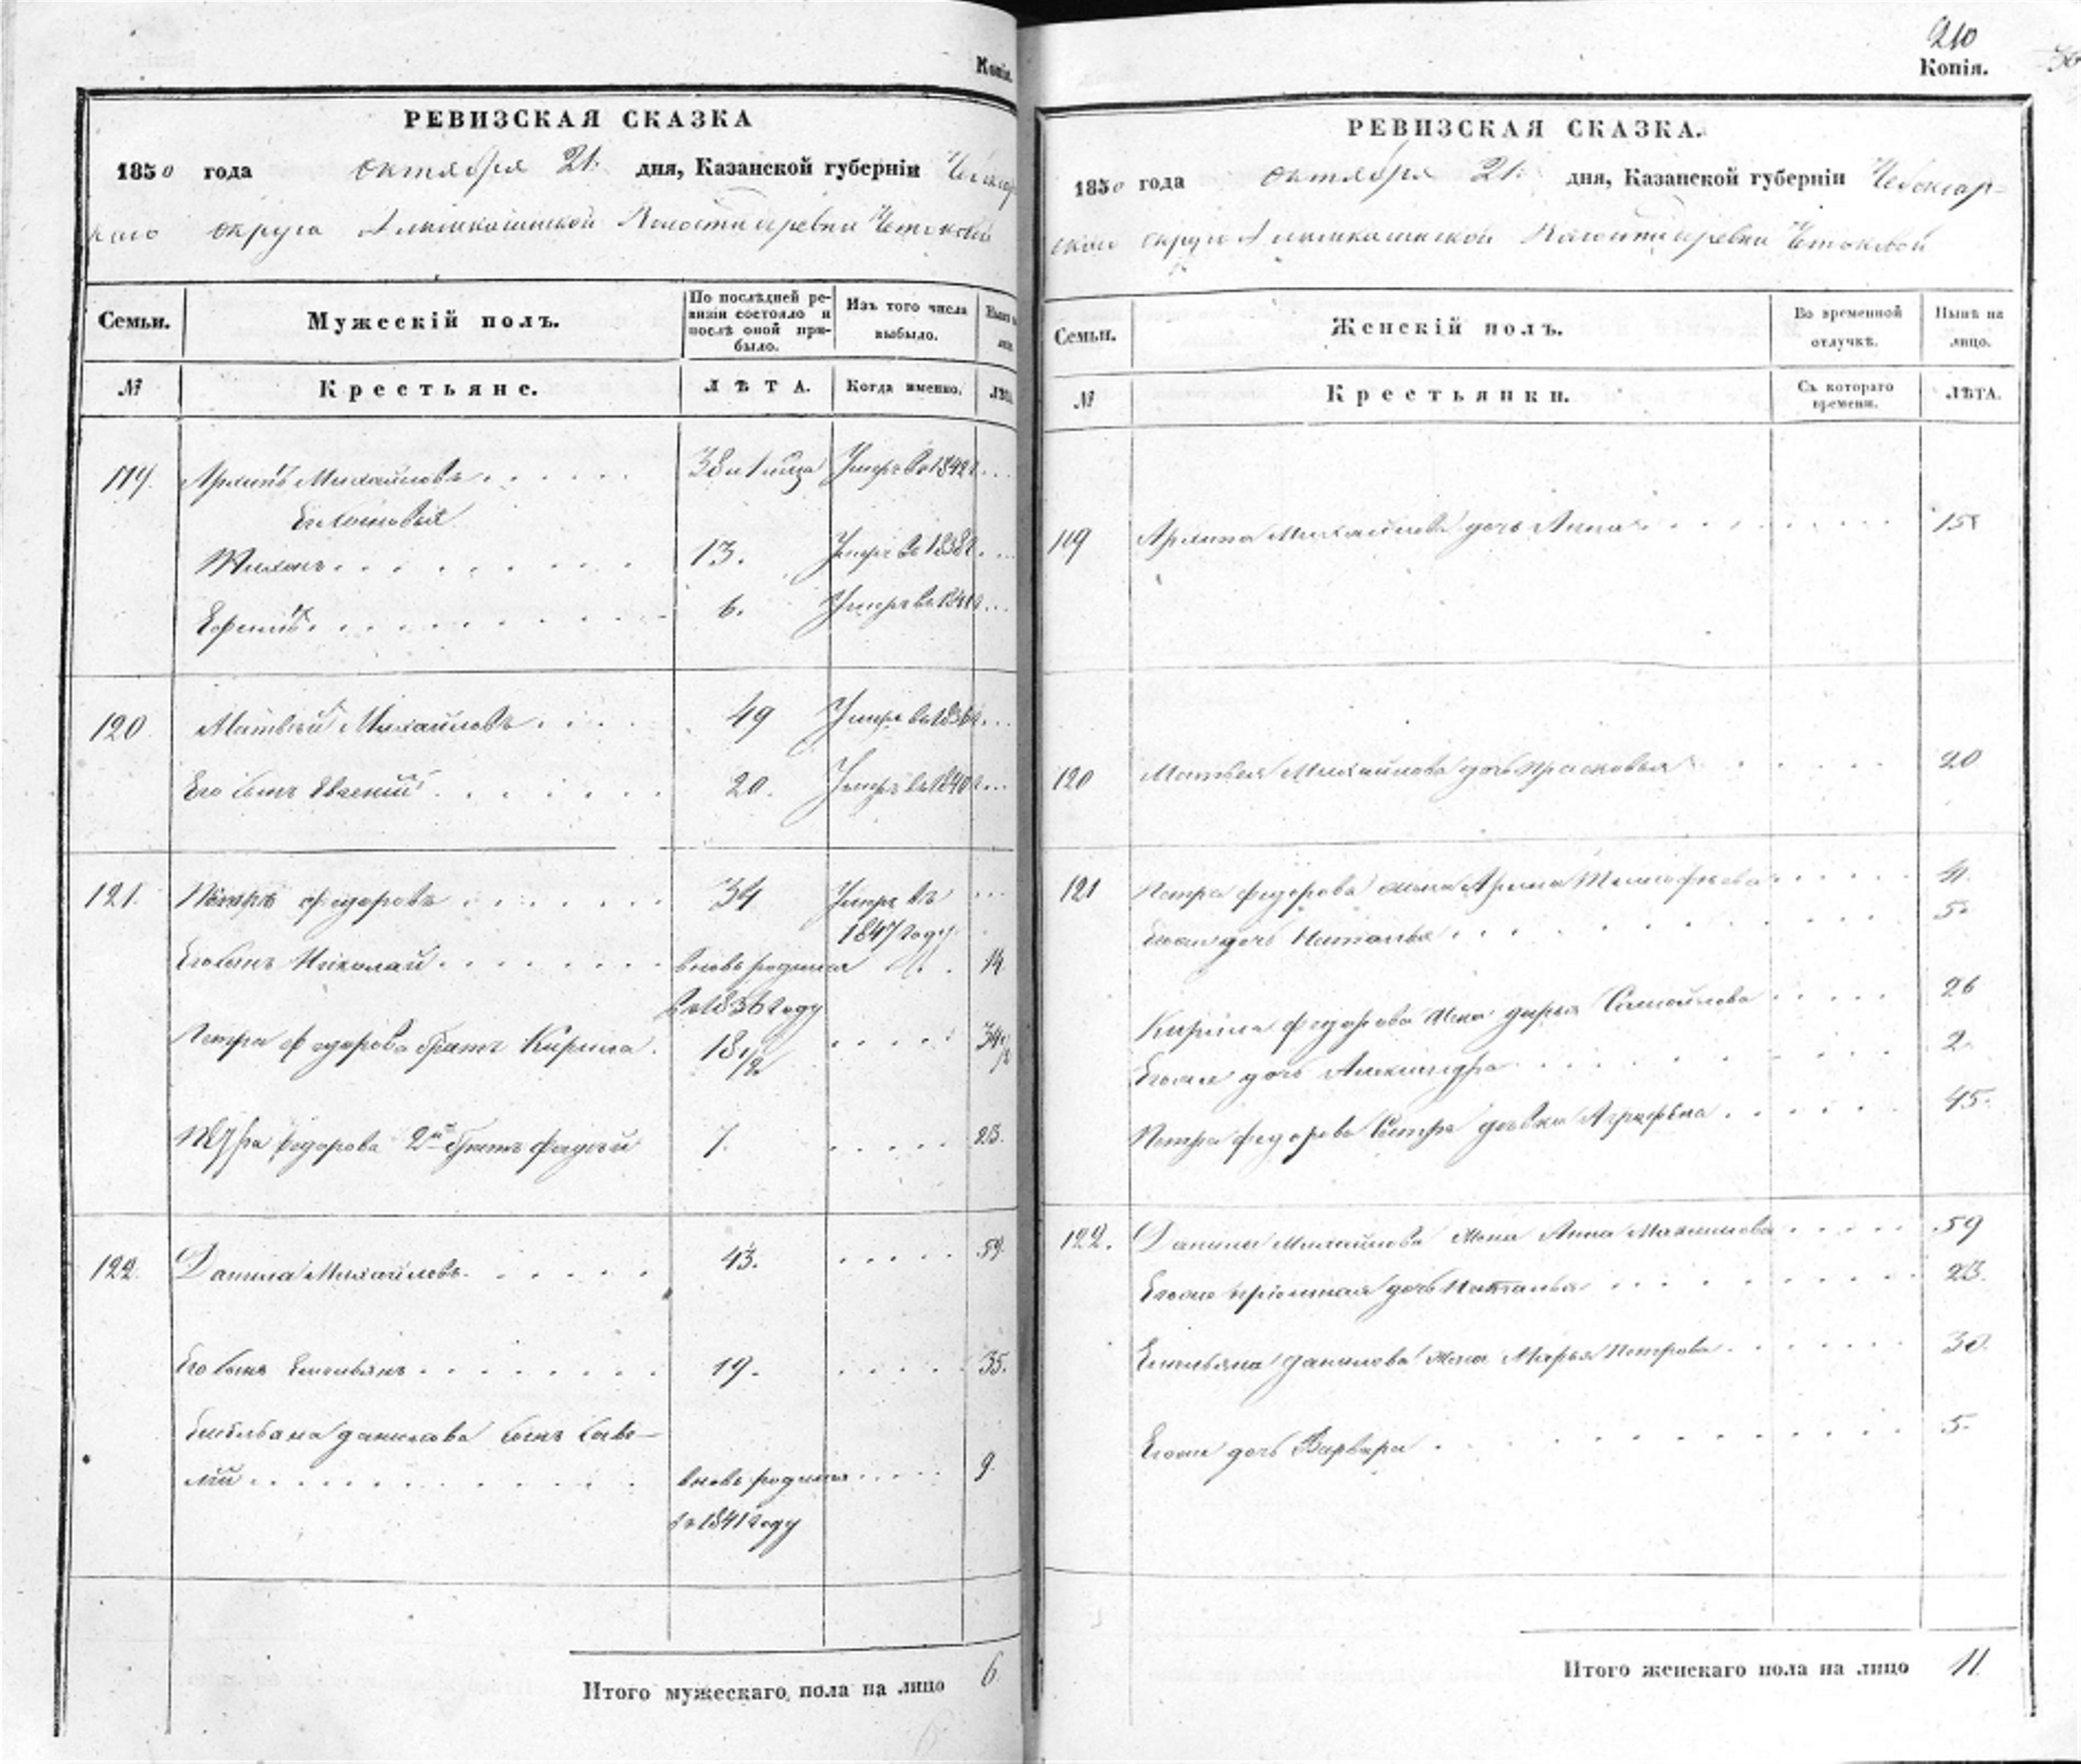 Копія.
РЕВИЗСКАЯ СКАЗКА
1850 года октября 21. дня, Казанской губерніи Чебоксар
скаго округа Волости деревни
Семьи.
Мужескій полъ.
По послѣдней ре-
визіи состояло и
послѣ оной при-
было.
Изъ того числа
выбыло.
№
Крестьяне.
ЛѢТА.
Когда именно.
ЛѢТА
119. Архипъ Михайловъ . . . . . 38 и Умеръ въ 1842 г . . .
Его сыновья
13. Умеръ въ 1838 г . . .
Ефимъ . . . . . . . . . 6. Умеръ въ 1841 г . . .
120. Матвѣй Михайловъ . . . . 49 Умеръ въ 1836 г . . .
Его сынъ Евсений . . . . . . 20. Умеръ въ 1840 г . . .
121. Петръ Федоровъ . . . . . . 34 Умеръ въ . . .
1847 году
Его сынъ Николай . . . . . . . вновь родился 14
въ 1836 году
Петра Федорова братъ Кирила . 18 1/2 . . . . . 34 1/2
Петра Федорова 2й братъ Фадѣй 7. . . . . . 23.
122. Данила Михайловъ . . . . . . 43. . . . . . 59.
Его сынъ Емельянъ . . . . . . . 19. . . . . . 35.
Емельяна Данилова сынъ Саве-
лій . . . . . . . . . . вновь родился . . . . . 9.
въ 1841 году
Итого мужескаго пола на лицо 6
210
Копія.
РЕВИЗСКАЯ СКАЗКА.
1850 года октября 21. дня, Казанской губерніи Чебоксар-
скаго округа Волости деревни
Семьи.
Женскій полъ.
Во временной
отлучкѣ.
Нынѣ на
лицо.
№
Крестьянки.
Съ котораго
времени.
ЛѢТА.
119 Архипа Михайлова дочь Анна . . . . . . . . 15
120 Матвея Михайлова дочь Прасковья . . . . . . 20
121 Петра Федорова жена Арина Тимофеева . . . . .
Его же дочь Наталья . . . . . . . . . 5.
Кирила Федорова жена Дарья Самойлова . . . . . 26
Его же дочь Александра . . . . . . . . 2.
Петра Федорова сестра девка Аграфена . . . . . . 45.
122. Данилы Михайлова жена Анна Максимова . . . . . 59
Его же дочь Наталья . . . . . . . . 23.
Емельяна Данилова жена Марья Петрова . . . . . . 30.
Его же дочь Варвара . . . . . . . . . . 5.
Итого женскаго пола на лицо 11